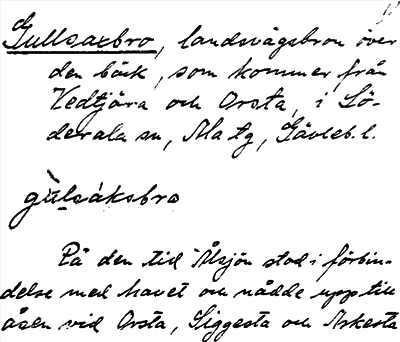 Gullsaxbro, landsvägsbron över
den bäck, som kommer från
Vedtjära och Orsta, i Sö-
derala sn, Ala tg, Gävleb. l.
gùlsáksbro
På den tid Ålsjön stod i förbin-
delse med havet och nådde upp till
åsen vid Orsta, Siggesta och Arkesta